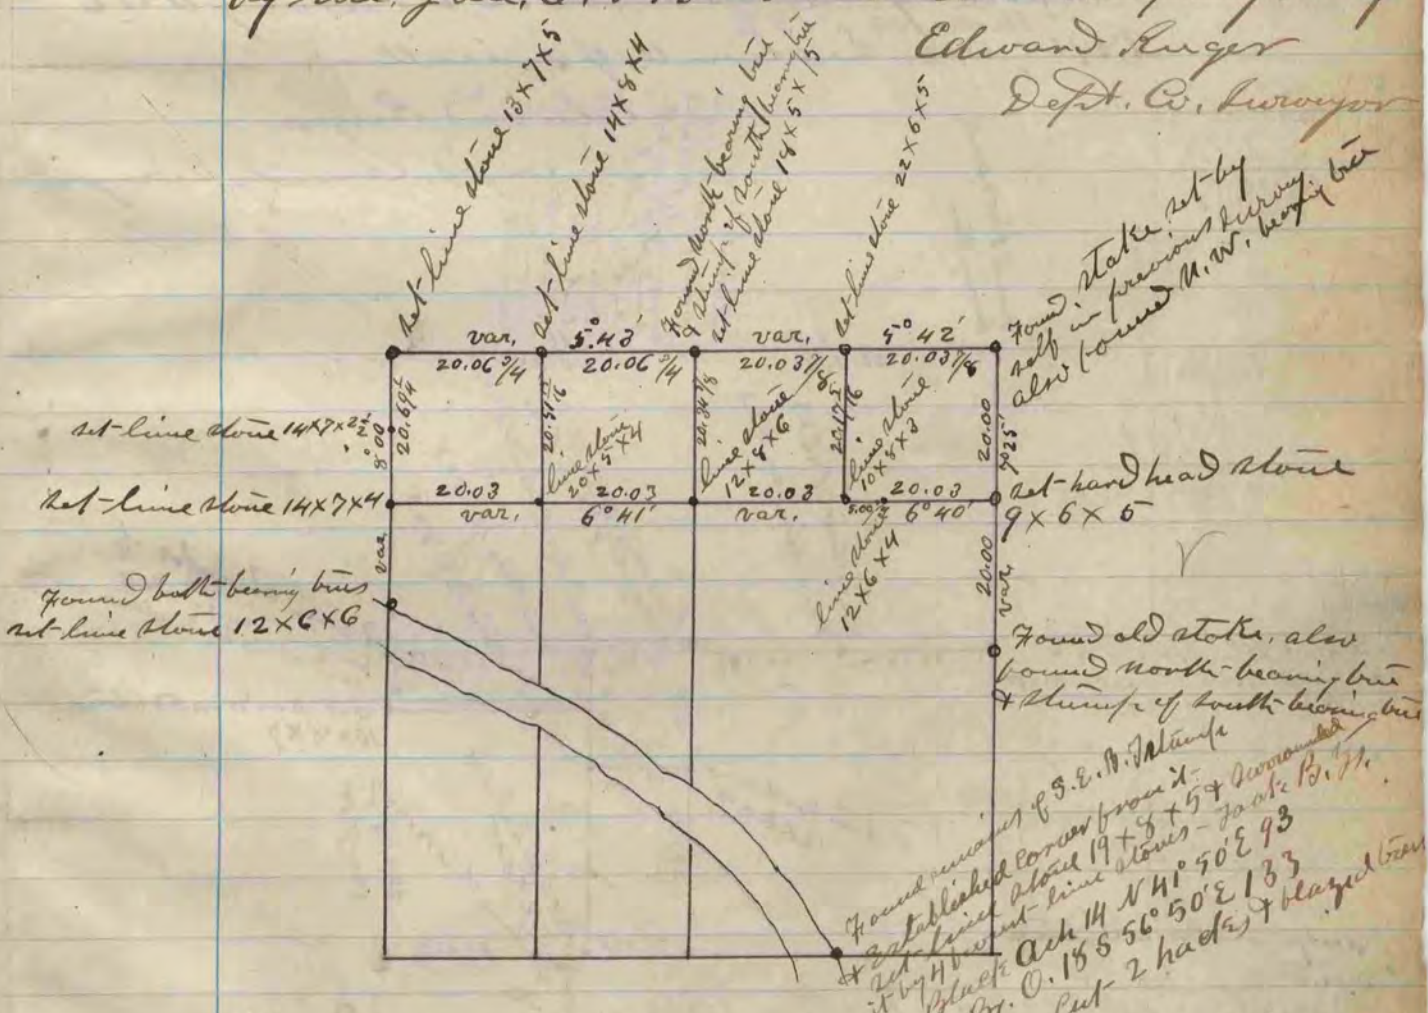 Edward Ruger
Dept. Co. Surveyor
set lime stone 13 x 7 x 5
set lime stone 14 x 8 x 4
Found North bearing tree
& stump of south bearing tree
set lime stone 18 x 5 x 5
set lime stone 22 x 6 x 5
Found stake set by
self in previous survey
also found N. W. bearing tree
var. 5° 43' var. 5° 42'
20.06 3/4 20.06 3/4 20.03 7/8 20.03 7/8
set lime stone 14 x 7 x 2 1/2
8.00
20.69 1/4
20.51
20.34 3/8
20.17 5/16
20.00
7° 25'
lime stone
20 x 5 x 4
lime stone
12 x 8 x 6
lime stone
10 x 8 x 3
set lime stone 14 x 7 x 4
20.03 20.03 20.03 20.03
var. 6° 41' var. 5.00 6° 40'
set hard head stone
9 x 6 x 5
lime stone
12 x 6 x 4
var.
20.00
var.
Found both bearing trees
set lime stone 12 x 6 x 6
Found old stake, also
found north bearing tree
& stump of south bearing tree
Found remains of S. E. B. T. stump
& Established corner from it
set lime stone 19 x 8 x 5 & surrounded
it by 4 lime stones - Took B. Ts.
Black Ash 14 N 41° 50' E 93
O. 18 S 56° 50' E 133
Cut 2 hacks & blazed trees